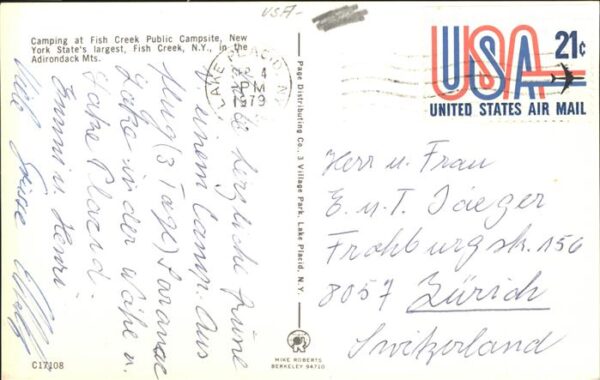 USA-
Camping at Fish Creek Public Campsite, New
York State's largest, Fish Creek, N.Y., in the
Adirondack Mts.
LAKE PLACID, NY
4
PM
1979
USA 21¢
UNITED STATES AIR MAIL
Page Distributing Co., 3 Village Park, Lake Placid, N.Y.
herzliche Grüsse
einem Camp. Aus
flug (3 Tage) Saranac
Lake in der Nähe v.
Lake Placid.
Emmi u. Henri
Viele Grüsse
Herr u. Frau
E. u. T. Jaeger
Frohburgstr. 156
8057 Zürich
Switzerland
C17108
MIKE ROBERTS
BERKELEY 94710